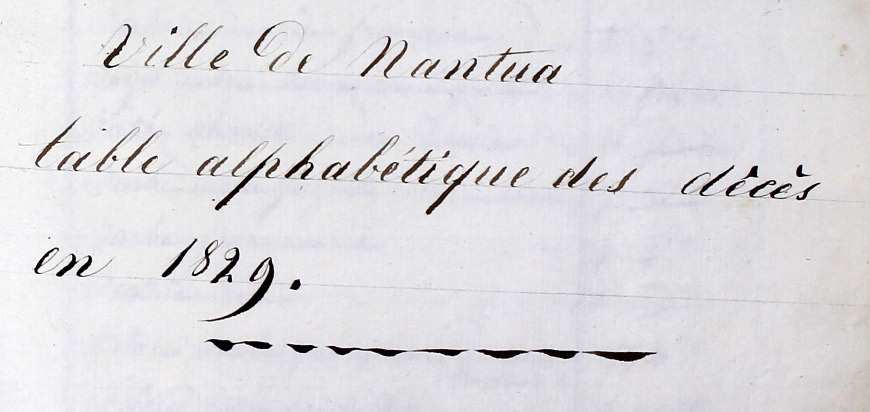 Ville de Nantua
table alphabétique des décès
en 1829.